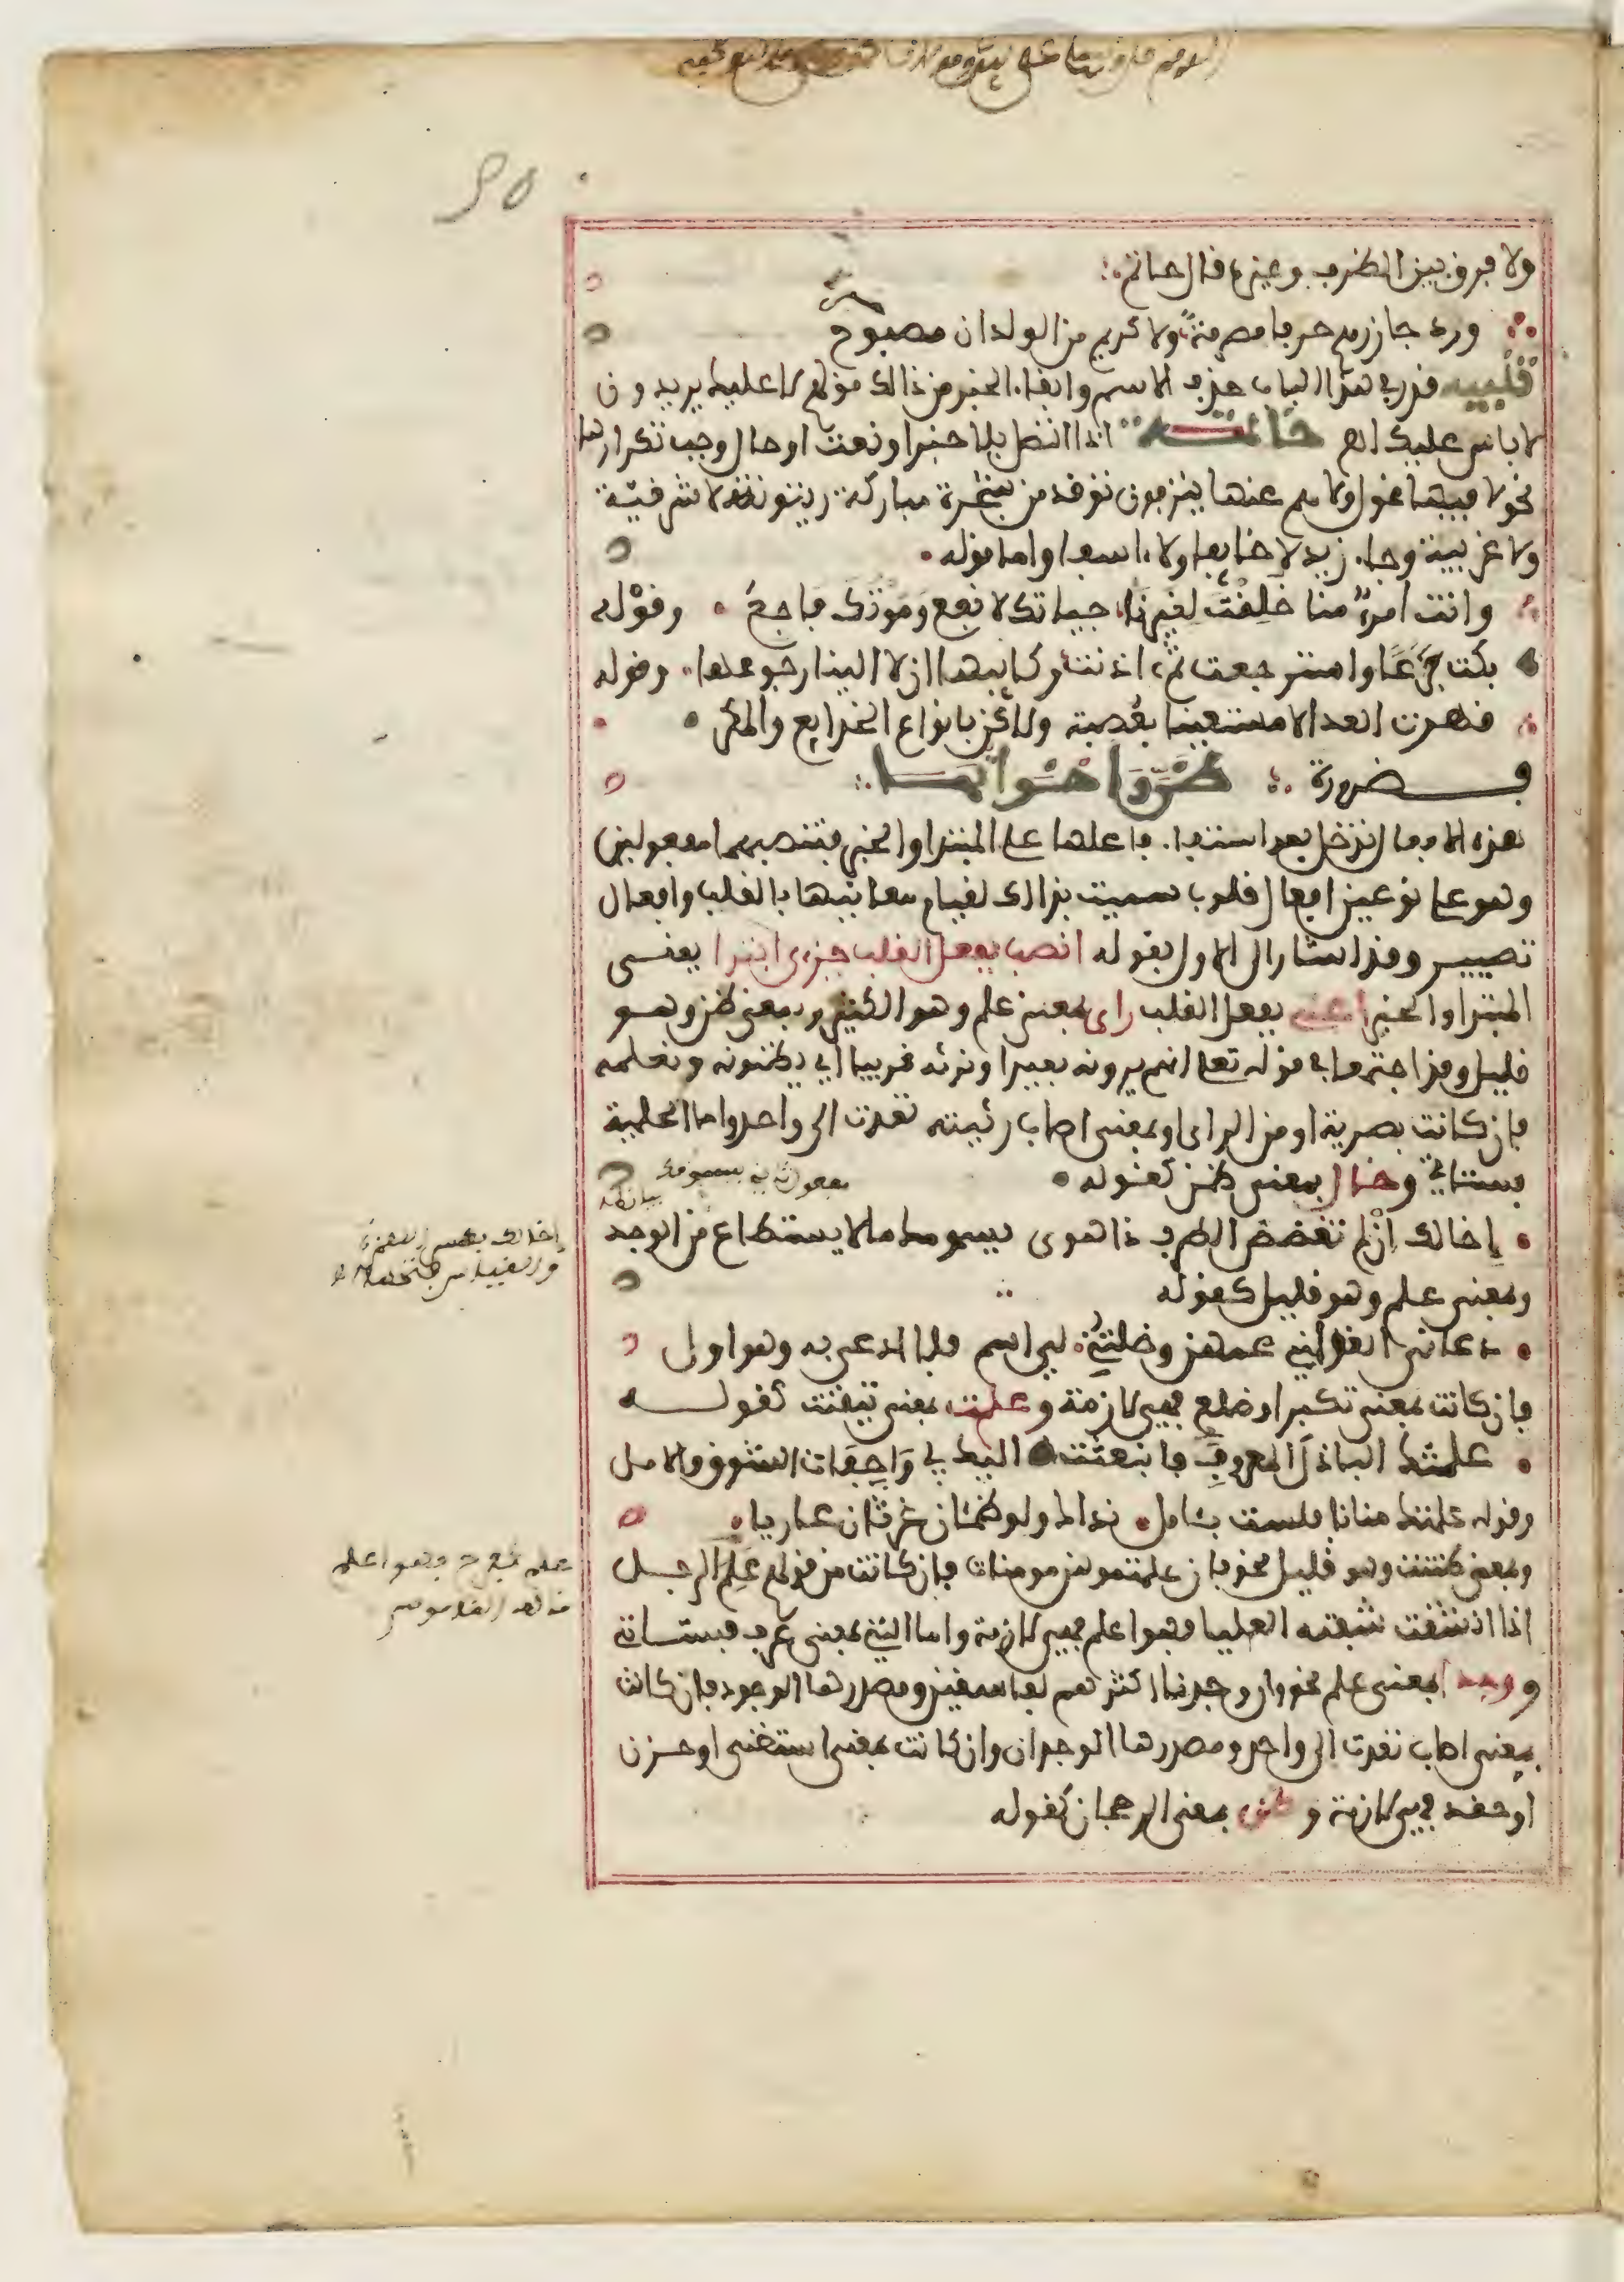 ولا فرق بين الظرف وغيره قال حاتم
ورد جازرهم حرفا مصرمة ولا كريم من الولدان مصبوح
تنبيه قدر في هذا الباب حذف الاسم وابقاء الخبر من ذالك قولهم لا عليك يريدون
لا باس عليك اهـ خاتمة اذا اتصل بلا خبر او نعت او حال وجب تكرارها
نحو لا فيها غول ولا هم عنها ينزفون توقد من شجرة مباركة زيتونة لا شرقية
ولا غربية وجاء زيد لا خايفا ولا اسفا واما قوله
وانت امرؤ منا خلقت لغيرنا حياتك لا نفع وموتك فاجع وقوله
بكت جزعا واسترجعت ثم اذنت ركايبها ان لا الينا رجوعها وقوله
قهرت العدا لا مستعينا بعصبة ولاكن بانواع الخدايع والمكر
فضرورة ظن واخواتها
هذه الافعال تدخل بعد استيفاء فاعلها على المبتدا والخبر فتنصبهما مفعولين
وهو على نوعين افعال قلوب سميت بذالك لقيام معانيها بالقلب وافعال
تصيير وقد اشار الى الاول بقوله انصب بفعل القلب جزءي ابتدا يعني
المبتدا والخبر اعني بفعل القلب راى بمعنى علم وهو الكثير وبمعنى ظن وهو
قليل وقد اجتمعا في قوله تعلى انهم يرونه بعيدا ونراه قريبا اي يظنونه ونعلمه
فان كانت بصرية او من الراي او بمعنى اصاب رئيته تعدت الى واحد واما الحلمية
فستاتي وخال بمعنى ظن كقوله
مفعول ثاني يسومك
إخالك ان لم تغضض الطرف ذا هوى يسومك ما لا يستطاع من الوجد
إخالك بكسر الهمزة
والقياس فتحها
وبمعنى علم وهو قليل كقوله
دعاني الغواني عمهن وخلتني لي اسم فلا ادعى به وهو اول
فان كانت بمعنى تكبر او ضلع فهي لازمة وعلمت بمعنى تيقنت كقوله
علمتك الباذل المعروف فانبعثت اليك بي واجفات الشوق والامل
وقوله علمتك منانا فلست بئامل نداك ولو ظمئان غرثان عاريا
وبمعنى ظننت وهو قليل نحو فان علمتموهن مومنات فان كانت من قولهم علم الرجل
علم كفرح فهو اعلم
قاله القاموس
اذا انشقت شفته العليا فهو اعلم فهي لازمة واما التي بمعنى عرف فستاتي
ووجد بمعنى علم نحو وان وجدنا اكثرهم لفاسقين ومصدرها الوجود فان كانت
بمعنى اصاب تعدت الى واحد ومصدرها الوجدان وان كانت بمعنى استغنى او حزن
او حقد فهي لازمة وظن بمعنى الرجحان كقوله